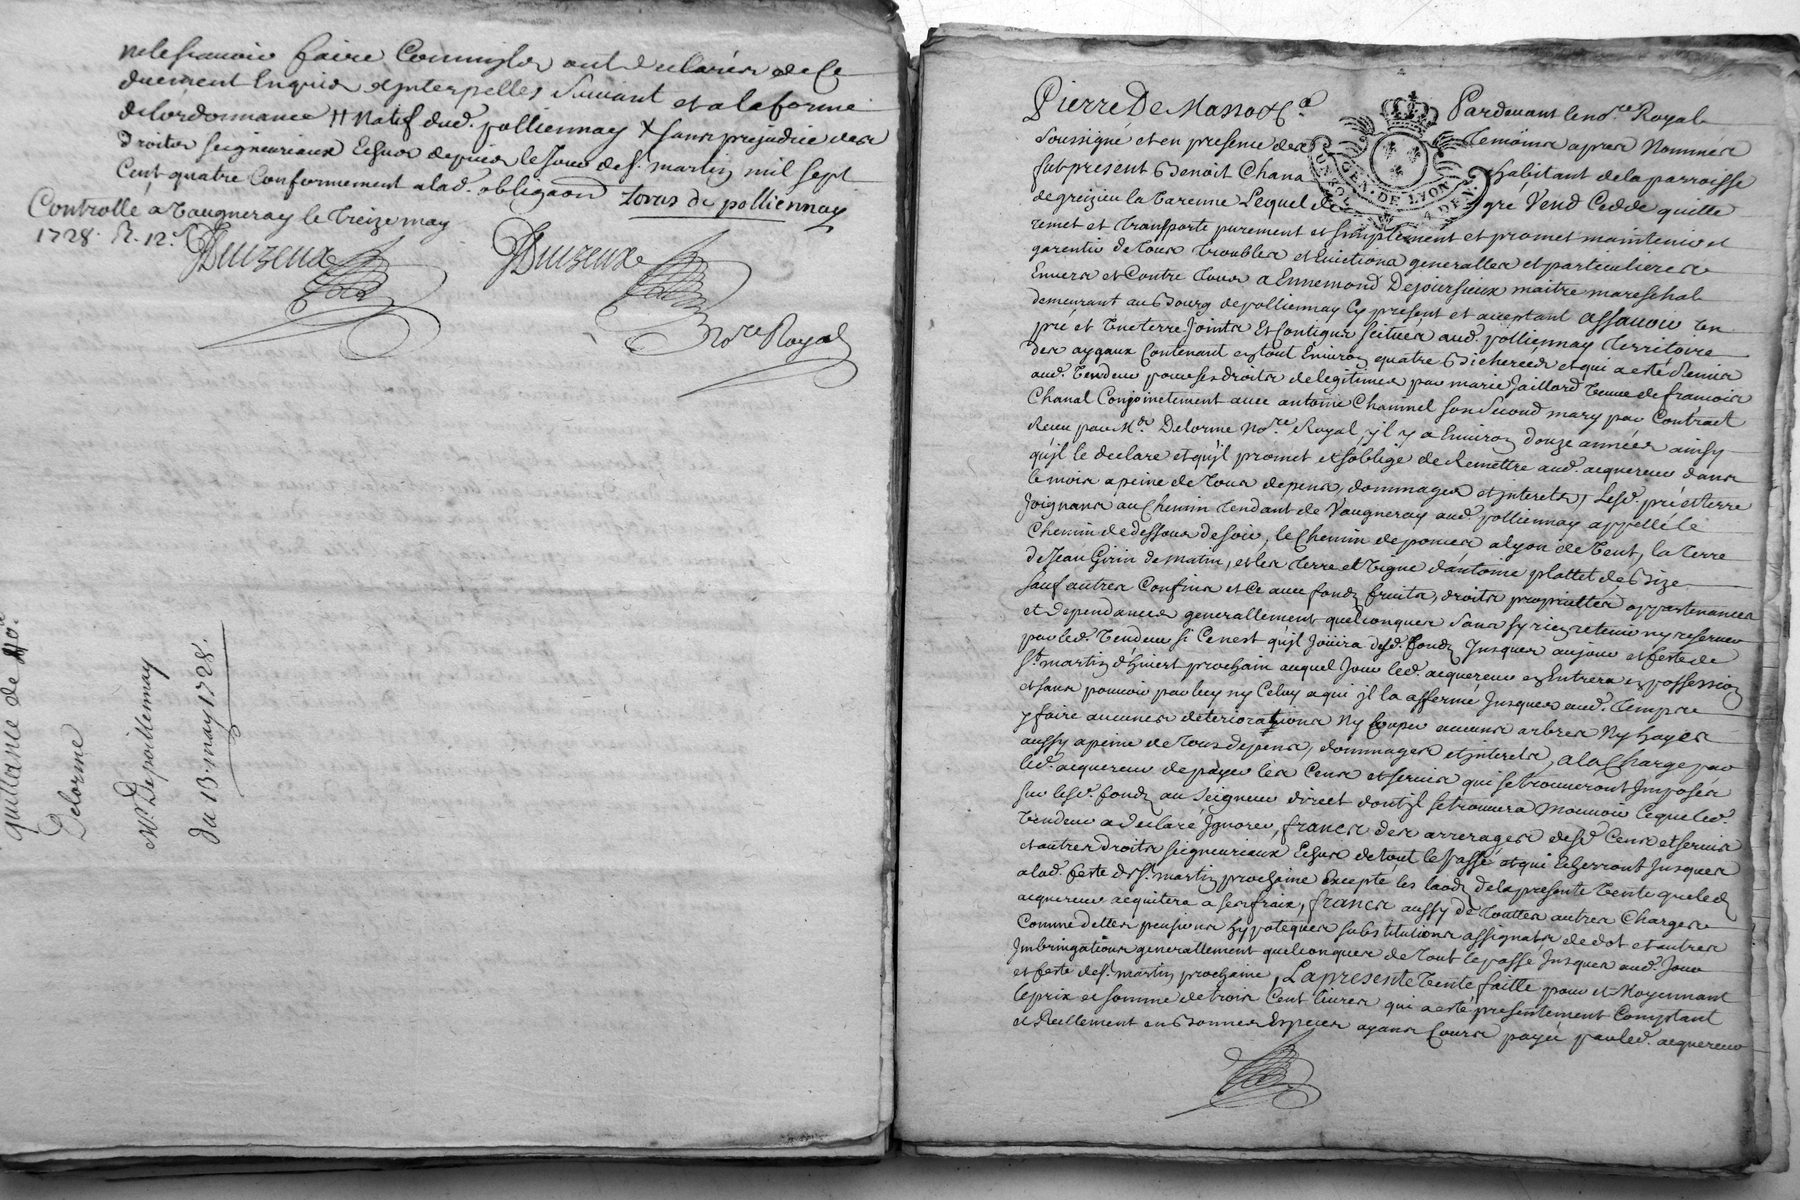 nele scavoir faire Commis les ont declarés de Ce
duement Enquis et interpellés Suivant et a la forme
de lordonnance # Natif dud. polliennay X sans prejudice des
droits seigneuriaux Echus depuis le Jour de st. martin mil sept
Cent quatre Conformement alad. obligaon Zoras de polliennay
Controllé a Vaugneray le treize may
1728. R. 12s.
Duizeux Duizeux
Nore Royal
quittance de
Delorme
Mr. De poillemnay
du 13. may 1728.
Pierre De Masso &a.
GEN. DE LYON
Pardevant le nore. Royal
Soussigné et en presence des Temoins apres Nommés
fut present Benoit Chana habitant de la parroisse
de greizieu la Varenne Lequel de gré Vend Cedde quitte
remet et transporte purement et simplement et promet maintenir et
garentir de tous Troubles et Evictions generalles et particulieres
Envers et Contre tous a Ennemond Dejoursieux maitre mareschal
demeurant au Bourg de polliennay Cy present et acceptant assavoir Un
pré et Une terre Joints Et Contigus scitués aud. polliennay Territoire
des aygaux Contenant en tout Environ quatre Bicherées et qui a esté Remis
aud. Vendeur pour ses droits de legitimes par marie Jaillard Veuve de francois
Chanal Conjointement avec antoine Chammel son second mary par Contract
Receu par Mr. Delorme Nore. Royal yl y a Environ douze années ainsy
qu'jl le declare et qu'jl promet et soblige de Remettre aud. acquereur dans
le mois a peine de tous depens, dommages et interets, Lesd. pré et terre
Joignans au Chemin tendant de Vaugneray aud. polliennay appellé le
Chemin de dessous de soir, le Chemin de pomeis a lyon de Vent, la terre
de Jean Girin de matin, et les terre et Vigne d'antoine plattet de Bize
sauf autres Confins et Ce avec fonds fruits, droits proprietés appartenances
et dependances generallement quelconques sans sy rien retenir ny reserver
par led. Vendeur si Ce nest qu'jl Joüira desd. fonds Jusques au jour et feste de
st. martin d'hivert prochain auquel Jour led. acquereur en Entrera en possession
et sans pouvoir par luy ny Celuy a qui jl la affermé Jusques aud. temps
y faire aucunes deteriorations Ny Couper aucuns arbres Ny hayes
aussy a peine de tous depens, dommages et interets, a la Charge par
led. acquereur de payer les Cens et servis qui se trouveront Imposés
sur lesd. fonds au seigneur direct dont jl se trouvera Mouvoir Ce que led.
Vendeur a declaré Ignorer, francs des arrerages desd. Cens et servis
et autres droits seigneuriaux Echus de tout le passé et qui Echerront Jusques
a lad. feste de st. martin prochaine Excepté les laods de la presente Vente que led.
acquereur acquitera a ses fraix, francs aussy de Touttes autres Charges
Comme dettes pensions hypoteques substitutions assignats de dot et autres
Imbringations generallement quelconques de tout le passé Jusques aud. Jour
et feste de st. martin prochaine, La presente Vente faitte pour et Moyennant
le prix et somme de trois Cent livres qui a esté presentement Comptant
et Reellement en Bonnes Especes ayans Cours payée par led. acquereur